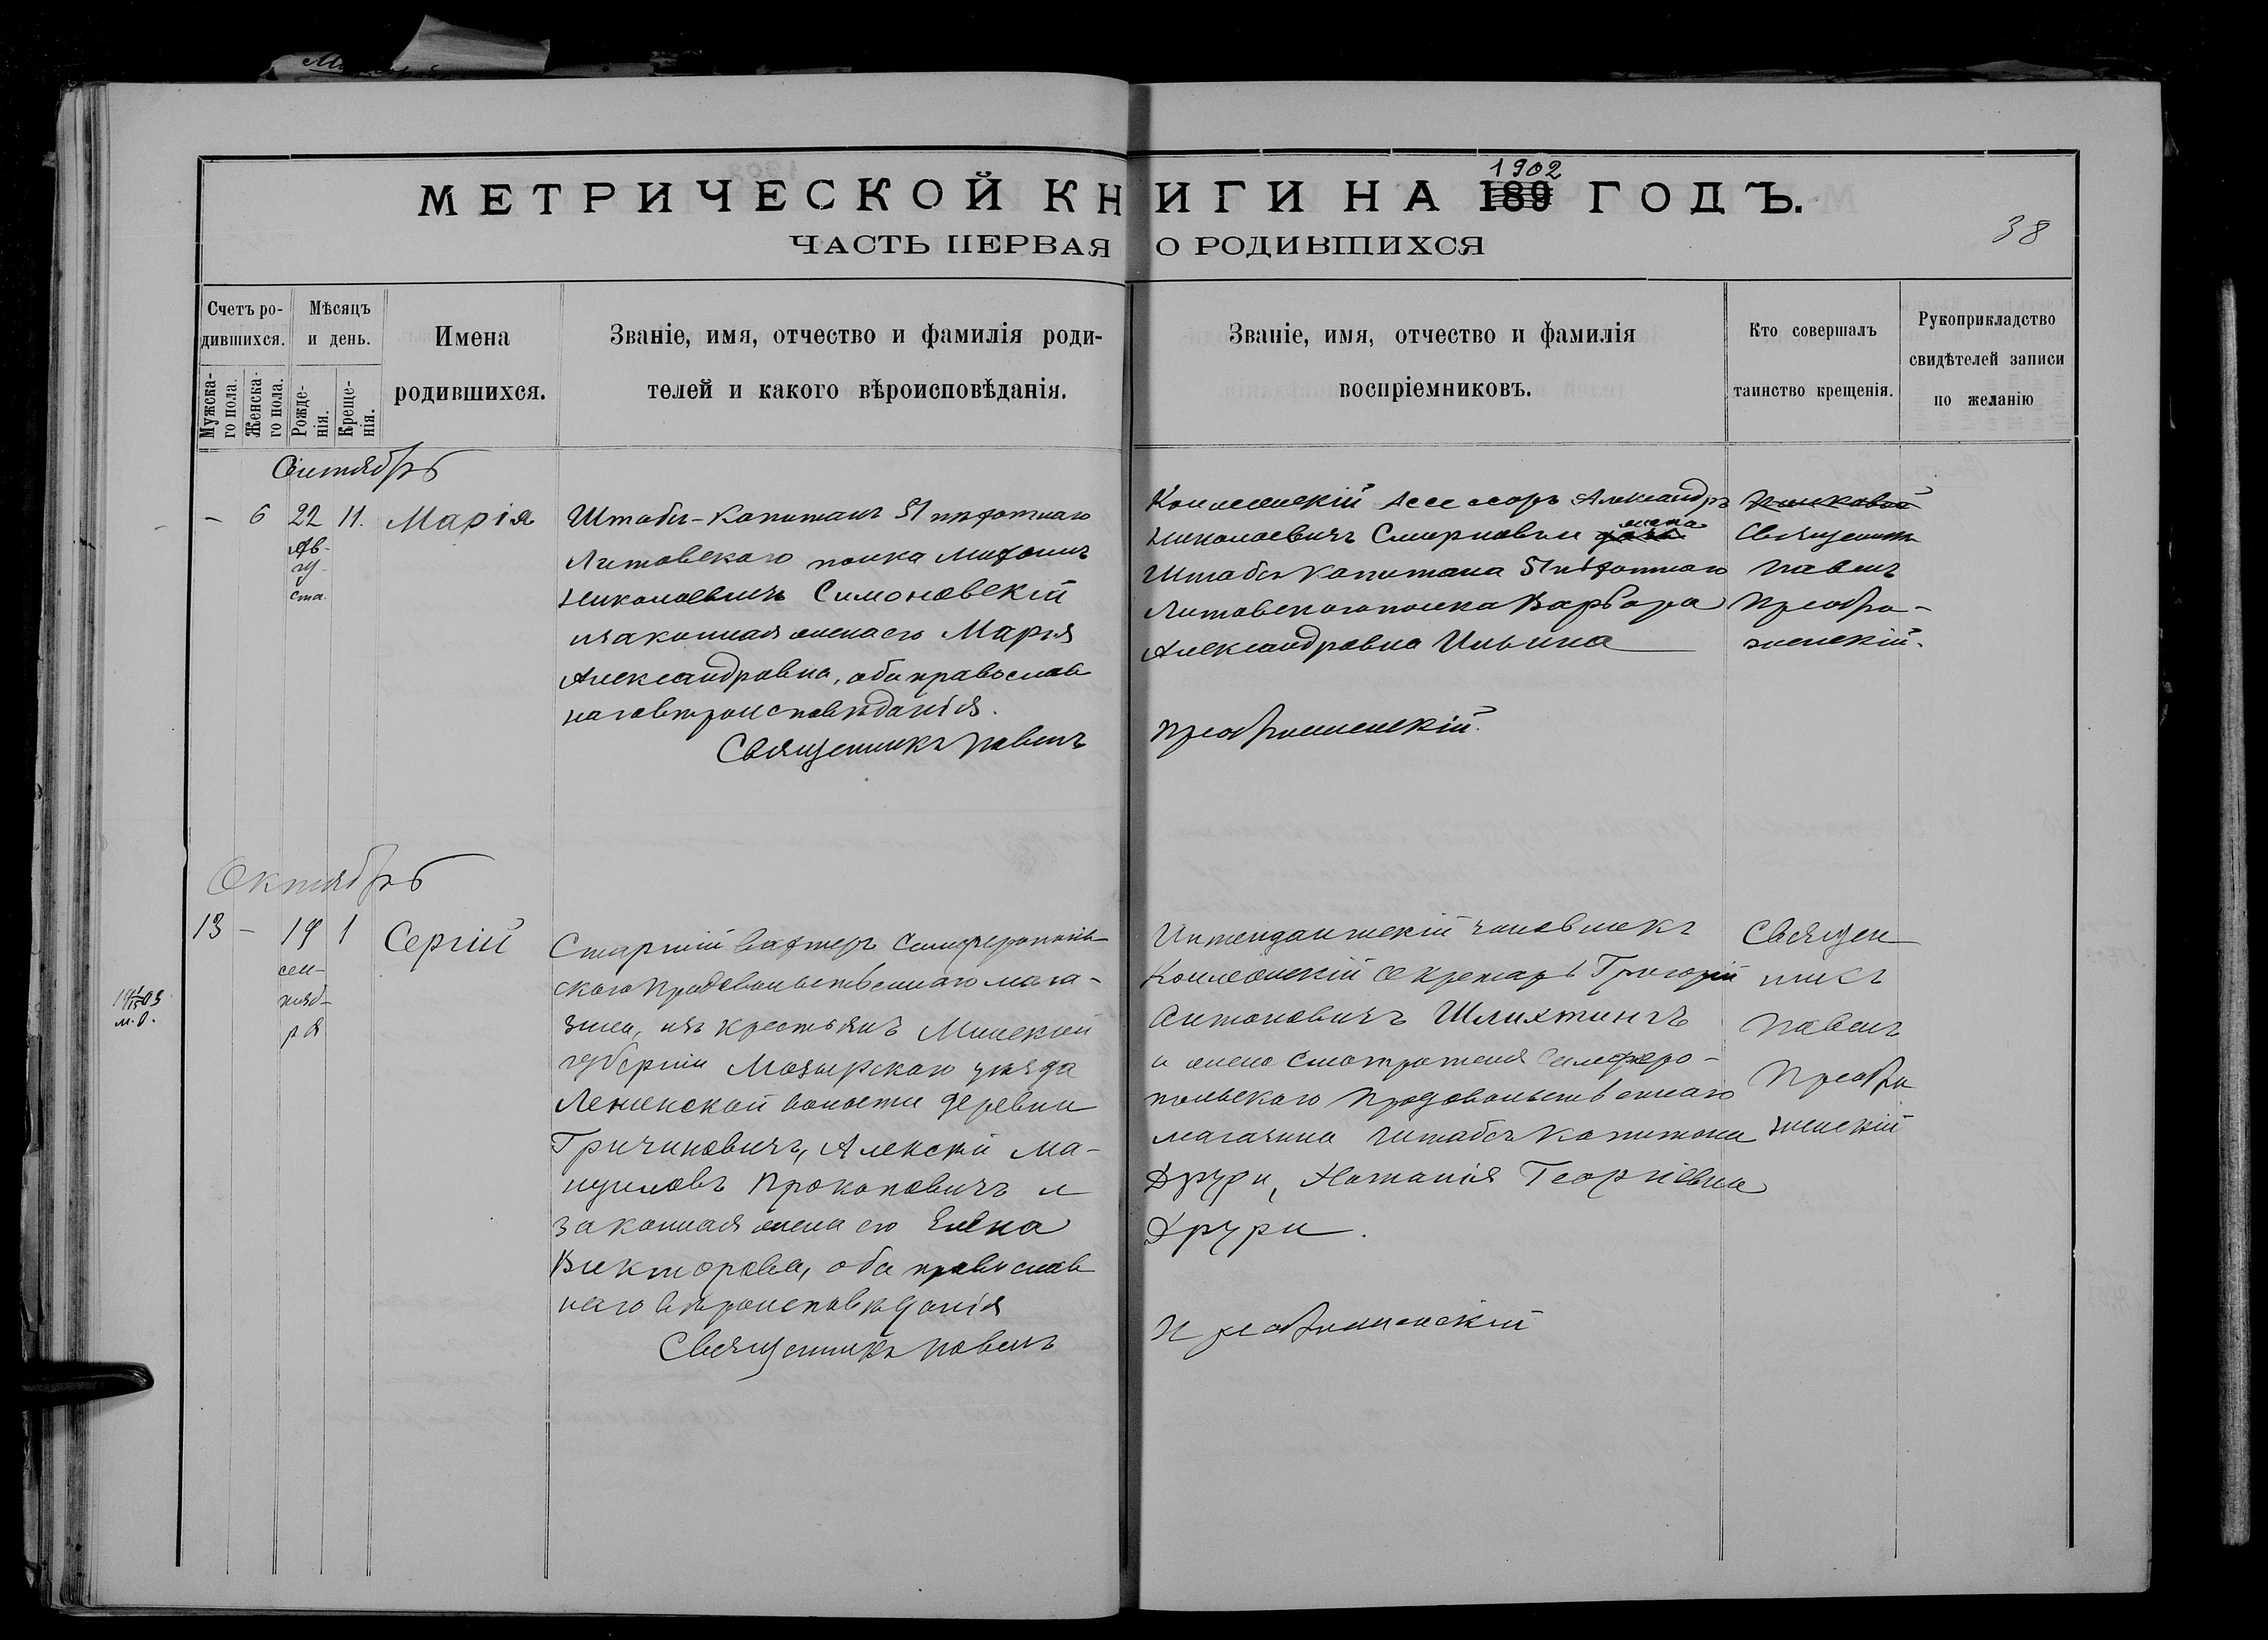 МЕТРИЧЕСКОЙ КНИГИ НА 189 1902 ГОДЪ.
ЧАСТЬ ПЕРВАЯ О РОДИВШИХСЯ
38
Счетъ ро-
дившихся.
Мужска-
го пола.
Женска-
го пола.
Мѣсяцъ
и день.
Рожде-
нія.
Креще-
нія.
Имена
родившихся.
Званіе, имя, отчество и фамилія роди-
телей и какого вѣроисповѣданія.
Званіе, имя, отчество и фамилія
воспріемниковъ.
Кто совершалъ
таинство крещенія.
Рукоприкладство
свидѣтелей записи
по желанію
Сентябрь
- 6 22 11. Марія
Ав-
гу-
ста.
Штабсъ-Капитанъ 51 пѣхотнаго
Литовскаго полка Митофанъ
Николаевичъ Симоновскій
и законная жена его Марія
Александровна, оба православ
наго вѣроисповѣданія.
Священникъ Павелъ
Коллежскій Ассесоръ Александръ
Николаевичъ Смирновъ и жена
Штабсъ Капитана 51 пѣхотнаго
Литовскаго полка Варвара
Александровна Ильина
Преображенскій.
Полковой
Священникъ
Павелъ
Преобра-
женскій.
Октябрь
13 - 19 1 Сергій
сен-
тяб-
ря
м. в.
Старшій вахтеръ Симферополь-
скаго Продовольственнаго мага-
зина, изъ крестьянъ Минской
губерніи Мозырскаго уѣзда
Ленинской волости деревни
Гричиновичъ, Алексѣй Ма-
нуиловъ Прокоповичъ и
законная жена его Елена
Викторова, оба православ
наго вѣроисповѣданія
Священникъ Павелъ
Интендантскій чиновникъ
Коллежскій Секретарь Григорій
Антоновичъ Шлихтингъ
и жена Смотрителя Симферо-
польскаго Продовольственнаго
магазина Штабсъ Капитана
Друри, Наталія Георгіевна
Друри.
Преображенскій
Священ
никъ
Павелъ
Преобра
женскій